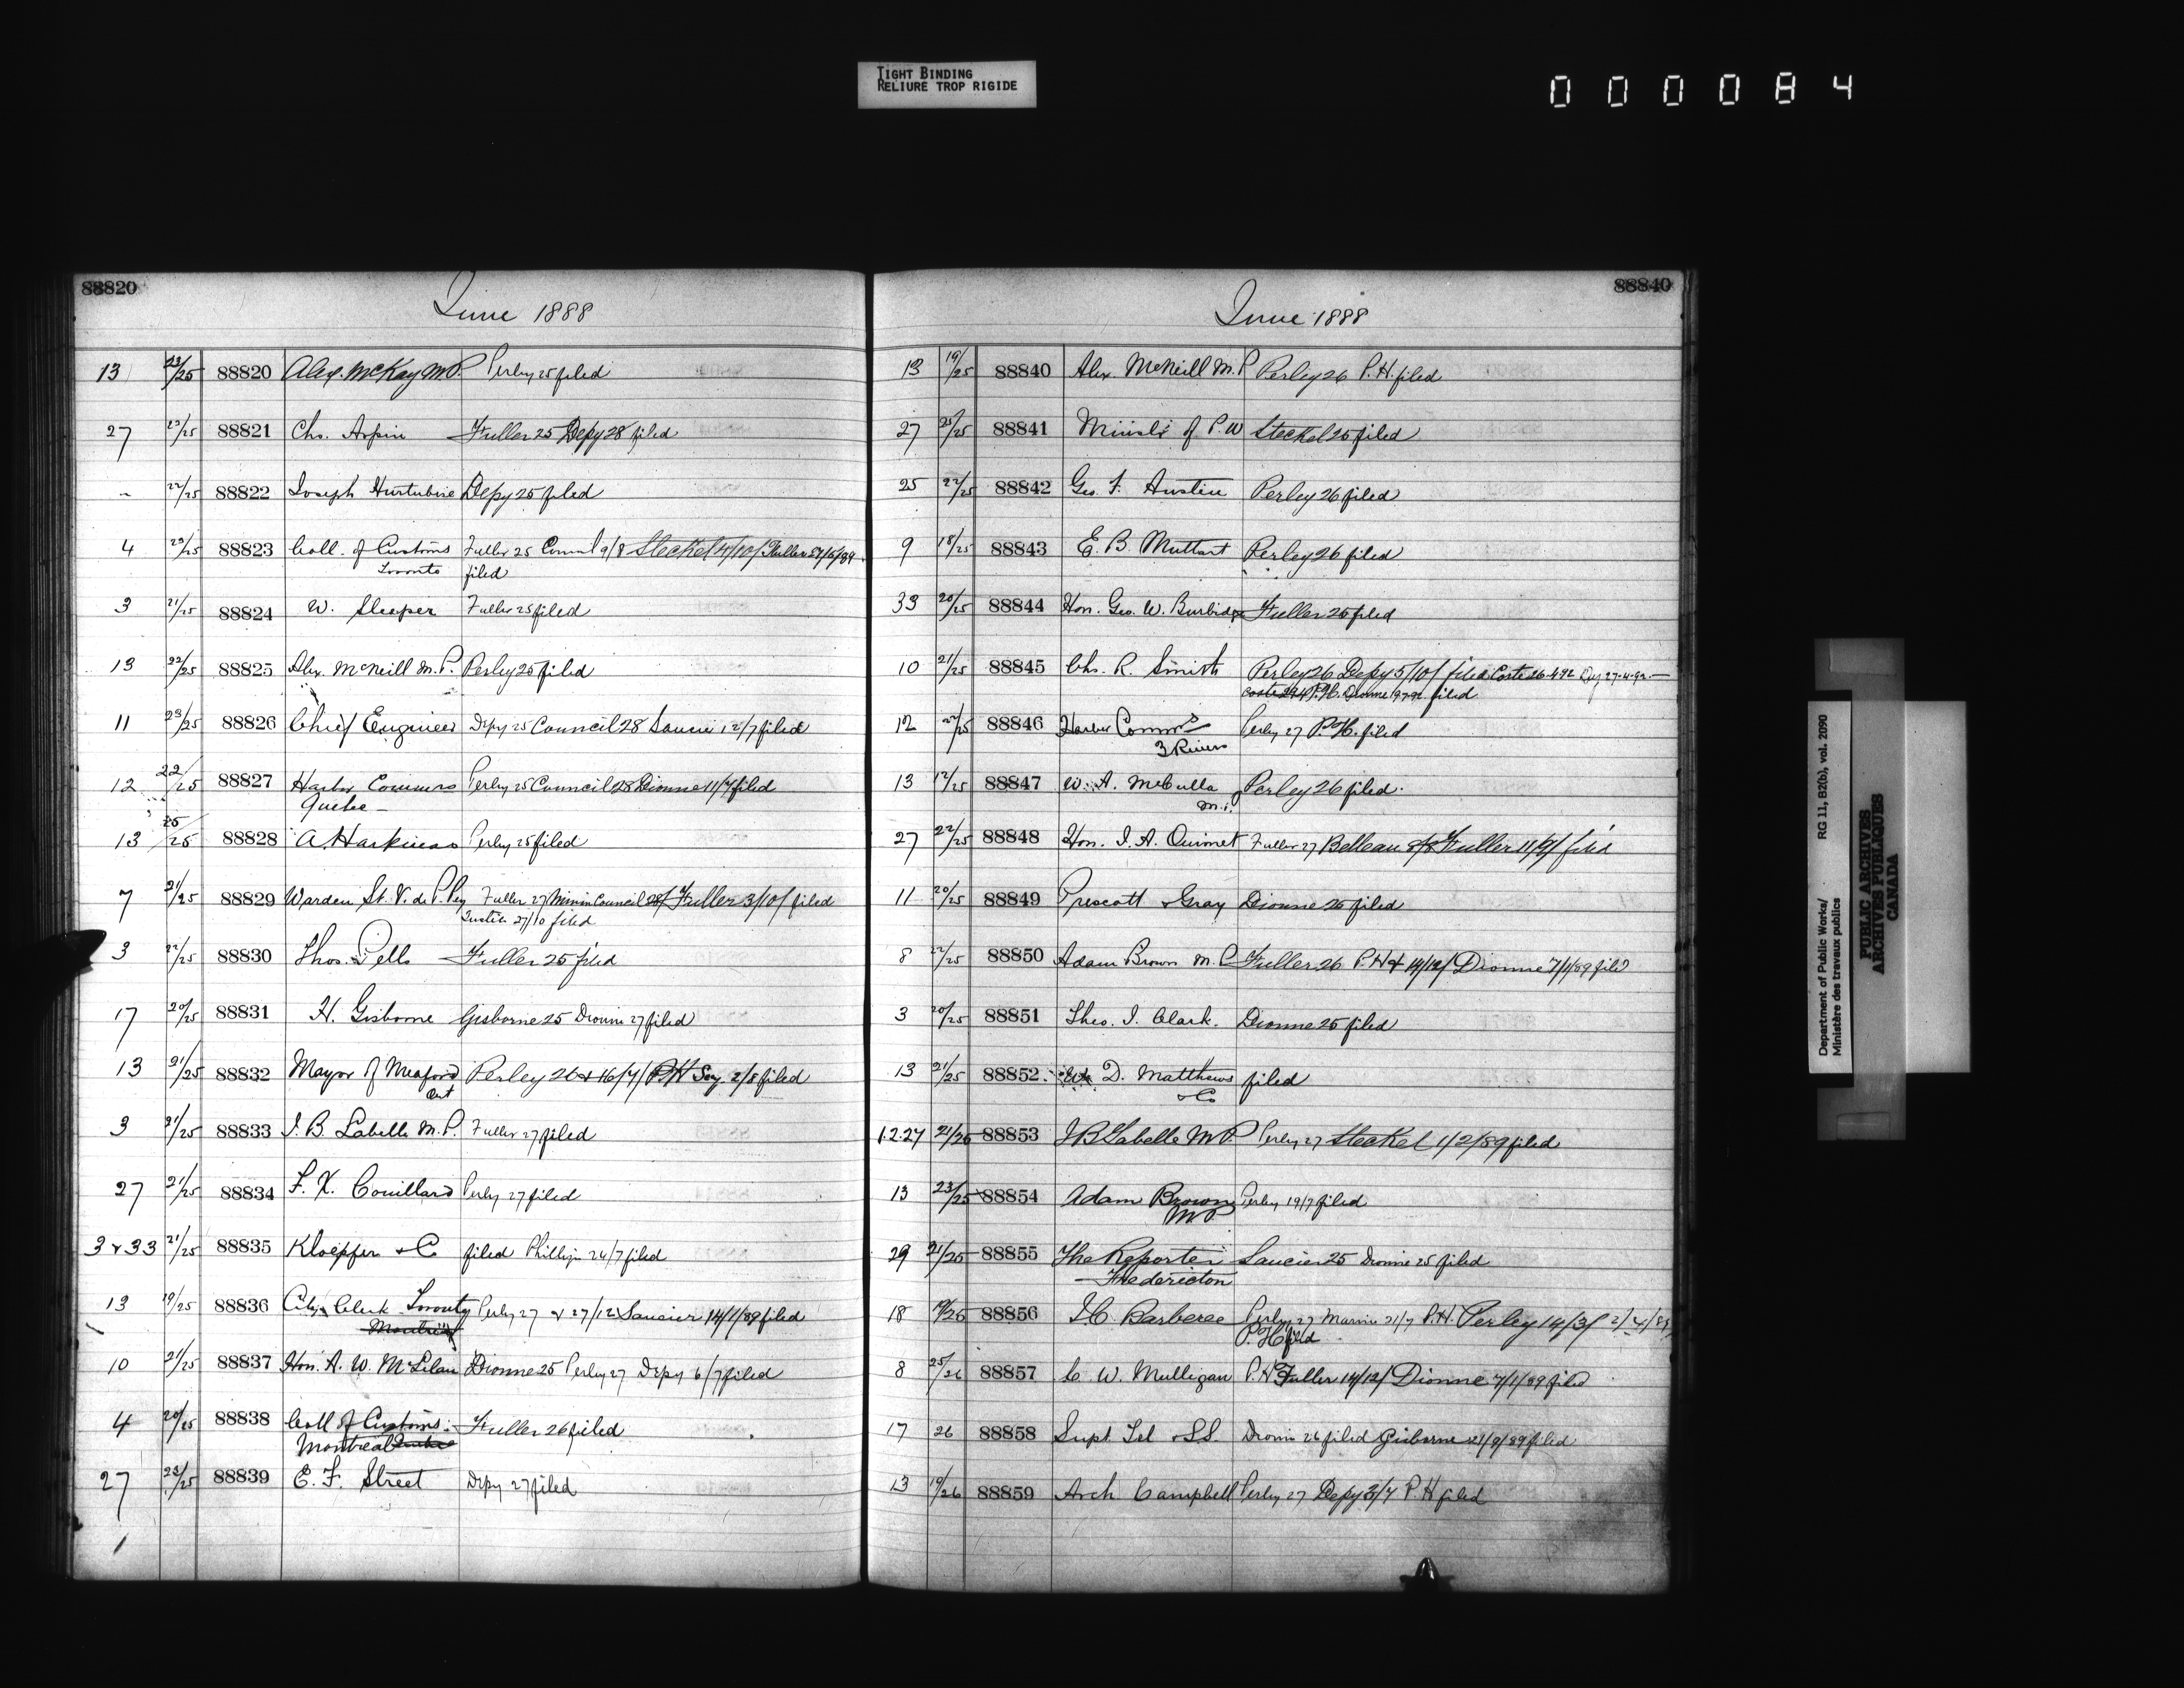 TIGHT BINDING
RELIURE TROP RIGIDE
000084
88820
June 1888
13 23/25 88820 Alex. McKay M.P. Perley 25 filed
27 23/25 88821 Chs. Arpin Fuller 25 Depy 28 filed
" 22/25 88822 Joseph Hurtubise Depy 25 filed
4 23/25 88823 Coll. of Customs Fuller 25 Council 9/8 Steckel 4/10/ Fuller 27/5/89
Toronto filed
3 21/25 88824 W. Sleeper Fuller 25 filed
13 22/25 88825 Alex. McNeill M.P. Perley 25 filed
11 23/25 88826 Chief Engineer Depy 25 Council 28 Saucier 12/7 filed
12 22/25 88827 Harbor Commrs Perley 25 Council 28 Dionne 11/7 filed
Quebec
13 25/25 88828 A. Harkness Perley 25 filed
7 21/25 88829 Warden St. V. de P. Pey Fuller 27 Council 28/ Fuller 3/10/ filed
Justice 27/10 filed
3 22/25 88830 Thos. Pells Fuller 25 filed
17 20/25 88831 H. Gisborne Gisborne 25 Dionne 27 filed
13 21/25 88832 Mayor of Meaford Perley 26 & 16/7/ P.H Sey. 2/8 filed
Ont
3 21/25 88833 J. B. Labelle M.P. Fuller 27 filed
27 21/25 88834 F. X. Couillard Perley 27 filed
3 & 33 21/25 88835 Kloepfer & Co filed Phillips 26/7 filed
13 19/25 88836 City Clerk Toronto Perley 27 & 27/12 Saucier 14/1/89 filed
Montreal
10 21/25 88837 Hon. A. W. McLelan Dionne 25 Perley 27 Depy 6/7 filed
4 20/25 88838 Coll of Customs Fuller 26 filed
Montreal
27 23/25 88839 E. F. Street Depy 27 filed
88840
June 1888
13 19/25 88840 Alex. McNeill M.P Perley 26 P.H. filed
27 25/25 88841 Minist. of P.W Steckel 25 filed
25 22/25 88842 Geo. F. Austin Perley 26 filed
9 18/25 88843 E. B. Muttart Perley 26 filed
33 20/25 88844 Hon. Geo. W. Burbidge Fuller 25 filed
10 21/25 88845 Chs. R. Smith Perley 26 Depy 5/10/ filed Coste 26-4-92 Dey 27-4-92
Coste 29/4 P.H. Dionne filed
12 22/25 88846 Harbor Commrs Perley 27 P.H. filed
3 Rivers
13 12/25 88847 W. A. McCulla Perley 26 filed.
M.P.
27 22/25 88848 Hon. J. A. Ouimet Fuller 27 Belleau 8/8 Fuller 11/9/ filed
11 20/25 88849 Prescott & Gray Dionne 25 filed
8 22/25 88850 Adam Brown M.P. Fuller 26 P.H & 14/12/ Dionne 7/1/89 filed
3 20/25 88851 Theo. J. Clark. Dionne 25 filed
13 21/25 88852 W. D. Matthews filed
& Co
12.27 21/25 88853 J B Labelle M P. Perley 27 Steckel 1/2/89 filed
13 23/25 88854 Adam Brown Perley 19/7 filed
M.P.
29 21/25 88855 The Reporter Saucier 25 Dionne 25 filed
Fredericton
18 19/25 88856 J C. Barberee Perley 27 Marine 21/7 P.H. Perley 14/3/ 2/4/89
P.H filed
8 25/26 88857 C W. Mulligan P.H Fuller 14/12/ Dionne 7/1/89 filed
17 26 88858 Supt. Tel & S.S. Dionne 26 filed Gisborne 21/9/89 filed
13 19/26 88859 Arch Campbell Perley 27 Depy 3/7 P.H filed
Department of Public Works/ RG 11, B2(b), vol. 2090
Ministère des travaux publics
PUBLIC ARCHIVES
ARCHIVES PUBLIQUES
CANADA